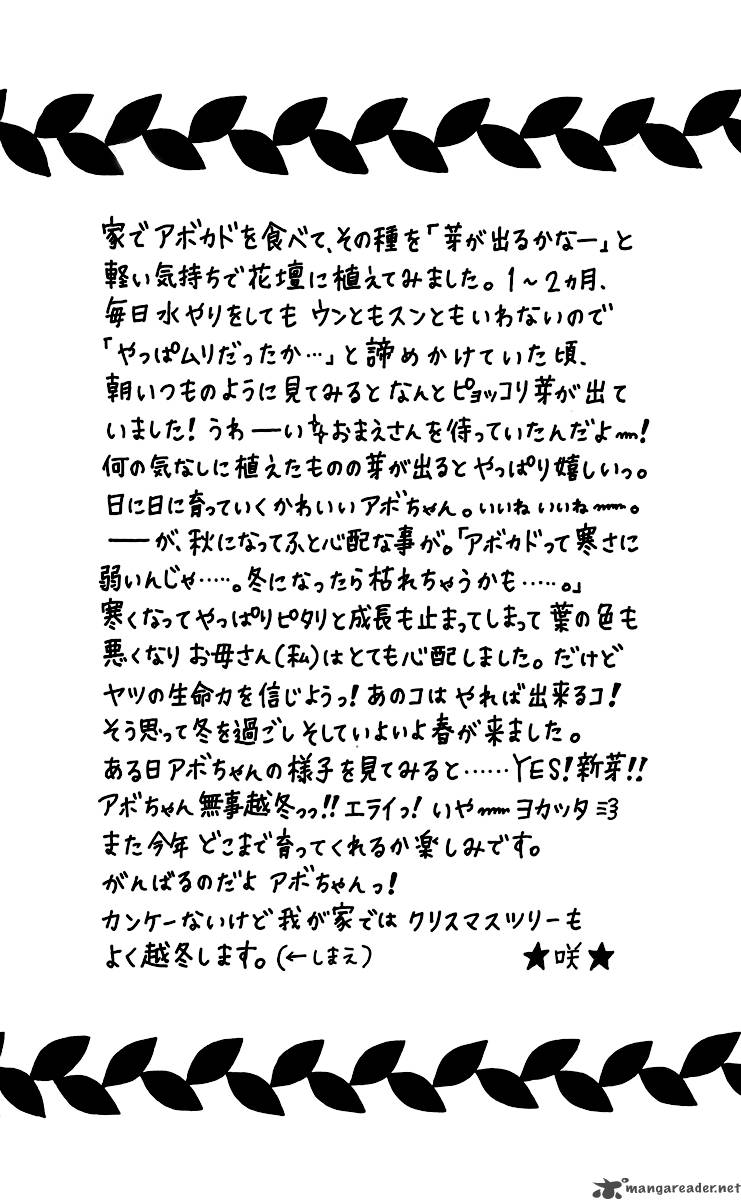 家でアボカドを食べて、その種を「芽が出るかなー」と
軽い気持ちで花壇に植えてみました。1～2ヵ月、
毎日水やりをしても ウンともスンともいわないので
「やっぱムリだったか…」と諦めかけていた頃、
朝いつものように見てみるとなんとピョッコリ芽が出て
いました！うわーーいおまえさんを待っていたんだよー！
何の気なしに植えたものの芽が出るとやっぱり嬉しいっ。
日に日に育っていくかわいいアボちゃん。いいねいいねー。
――が、秋になってふと心配な事が。「アボカドって寒さに
弱いんじゃ……。冬になったら枯れちゃうかも……。」
寒くなってやっぱりピタリと成長も止まってしまって葉の色も
悪くなりお母さん(私)はとても心配しました。だけど
ヤツの生命力を信じようっ！あのコは やれば出来るコ！
そう思って冬を過ごしそしていよいよ春が来ました。
ある日アボちゃんの様子を見てみると……YES！新芽！！
アボちゃん無事越冬っっ！！エライっ！いやー ヨカッタ
また今年 どこまで育ってくれるか楽しみです。
がんばるのだよ アボちゃんっ！
カンケーないけど我が家では クリスマスツリーも
よく越冬します。(←しまえ) ★咲★
mangareader.net